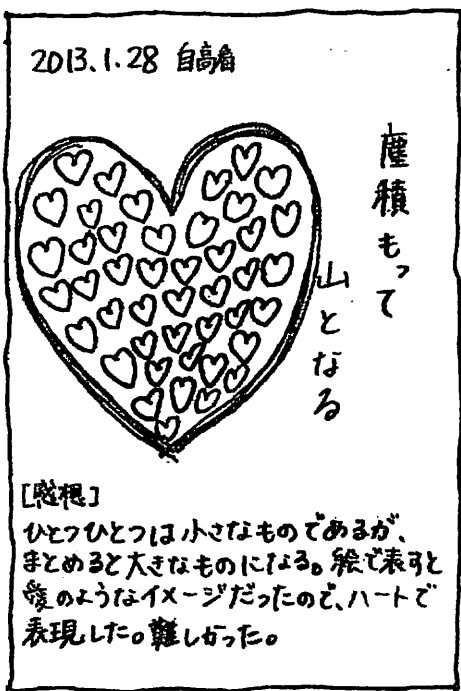 2013.1.28
塵積もって
山となる
[感想]
ひとつひとつは小さなものであるが、
まとめると大きなものになる。絵で表すと
愛のようなイメージだったので、ハートで
表現した。難しかった。